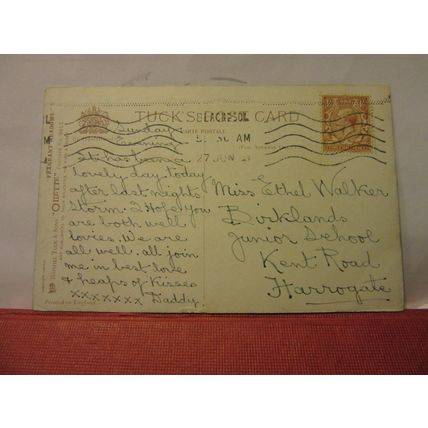 TUCK'S POST CARD
CARTE POSTALE
27 JUN
AM
Sunday
Evening
It has been a
lovely day today
after last nights
storm. I Hope you
are both well
lovies. We are
all well. all join
me in best love
& heaps of Kisses
xxxxxxx Daddy.
Miss Ethel Walker
Birklands
Junior School
Kent Road
Harrogate
"OILETTE"
Printed in England